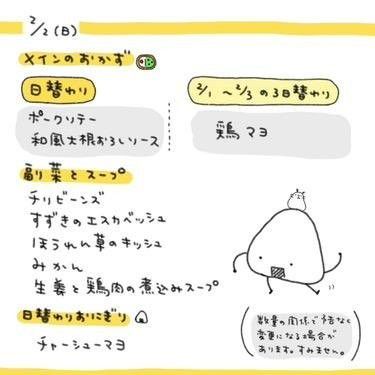 2/2(日)
メインのおかず
日替わり
2/1 〜 2/3 の3日替わり
ポークソテー
和風大根おろしソース
鶏マヨ
副菜とスープ
チリビーンズ
すずきのエスカベッシュ
ほうれん草のキッシュ
みかん
生姜と鶏肉の煮込みスープ
日替わりおにぎり
チャーシューマヨ
数量の関係で予告なく
変更になる場合が
あります。すみません。